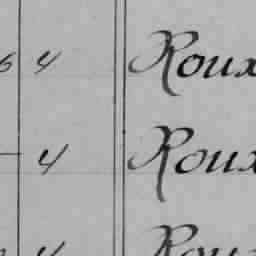 6 4 Roux
4 Roux
4 Roux